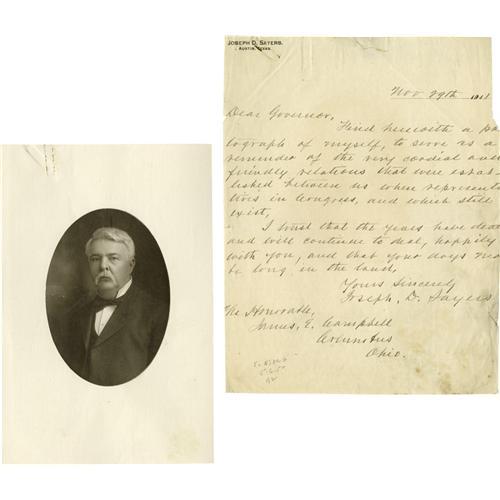 JOSEPH D. SAYERS.
AUSTIN, TEXAS.
Nov 29th, 1911
Dear Governor,
Find herewith a pho
tograph of myself, to serve as a
reminder of the very cordial and
friendly relations that were estab-
lished between us when representa
tives in Congress, and which still
exist.
I trust that the years have dealt
and will continue to deal, happily
with you, and that your days may
be long in the land.
Yours Sincerely
Joseph D. Sayers
The Honorable,
James E. Campbell
Columbus
Ohio.